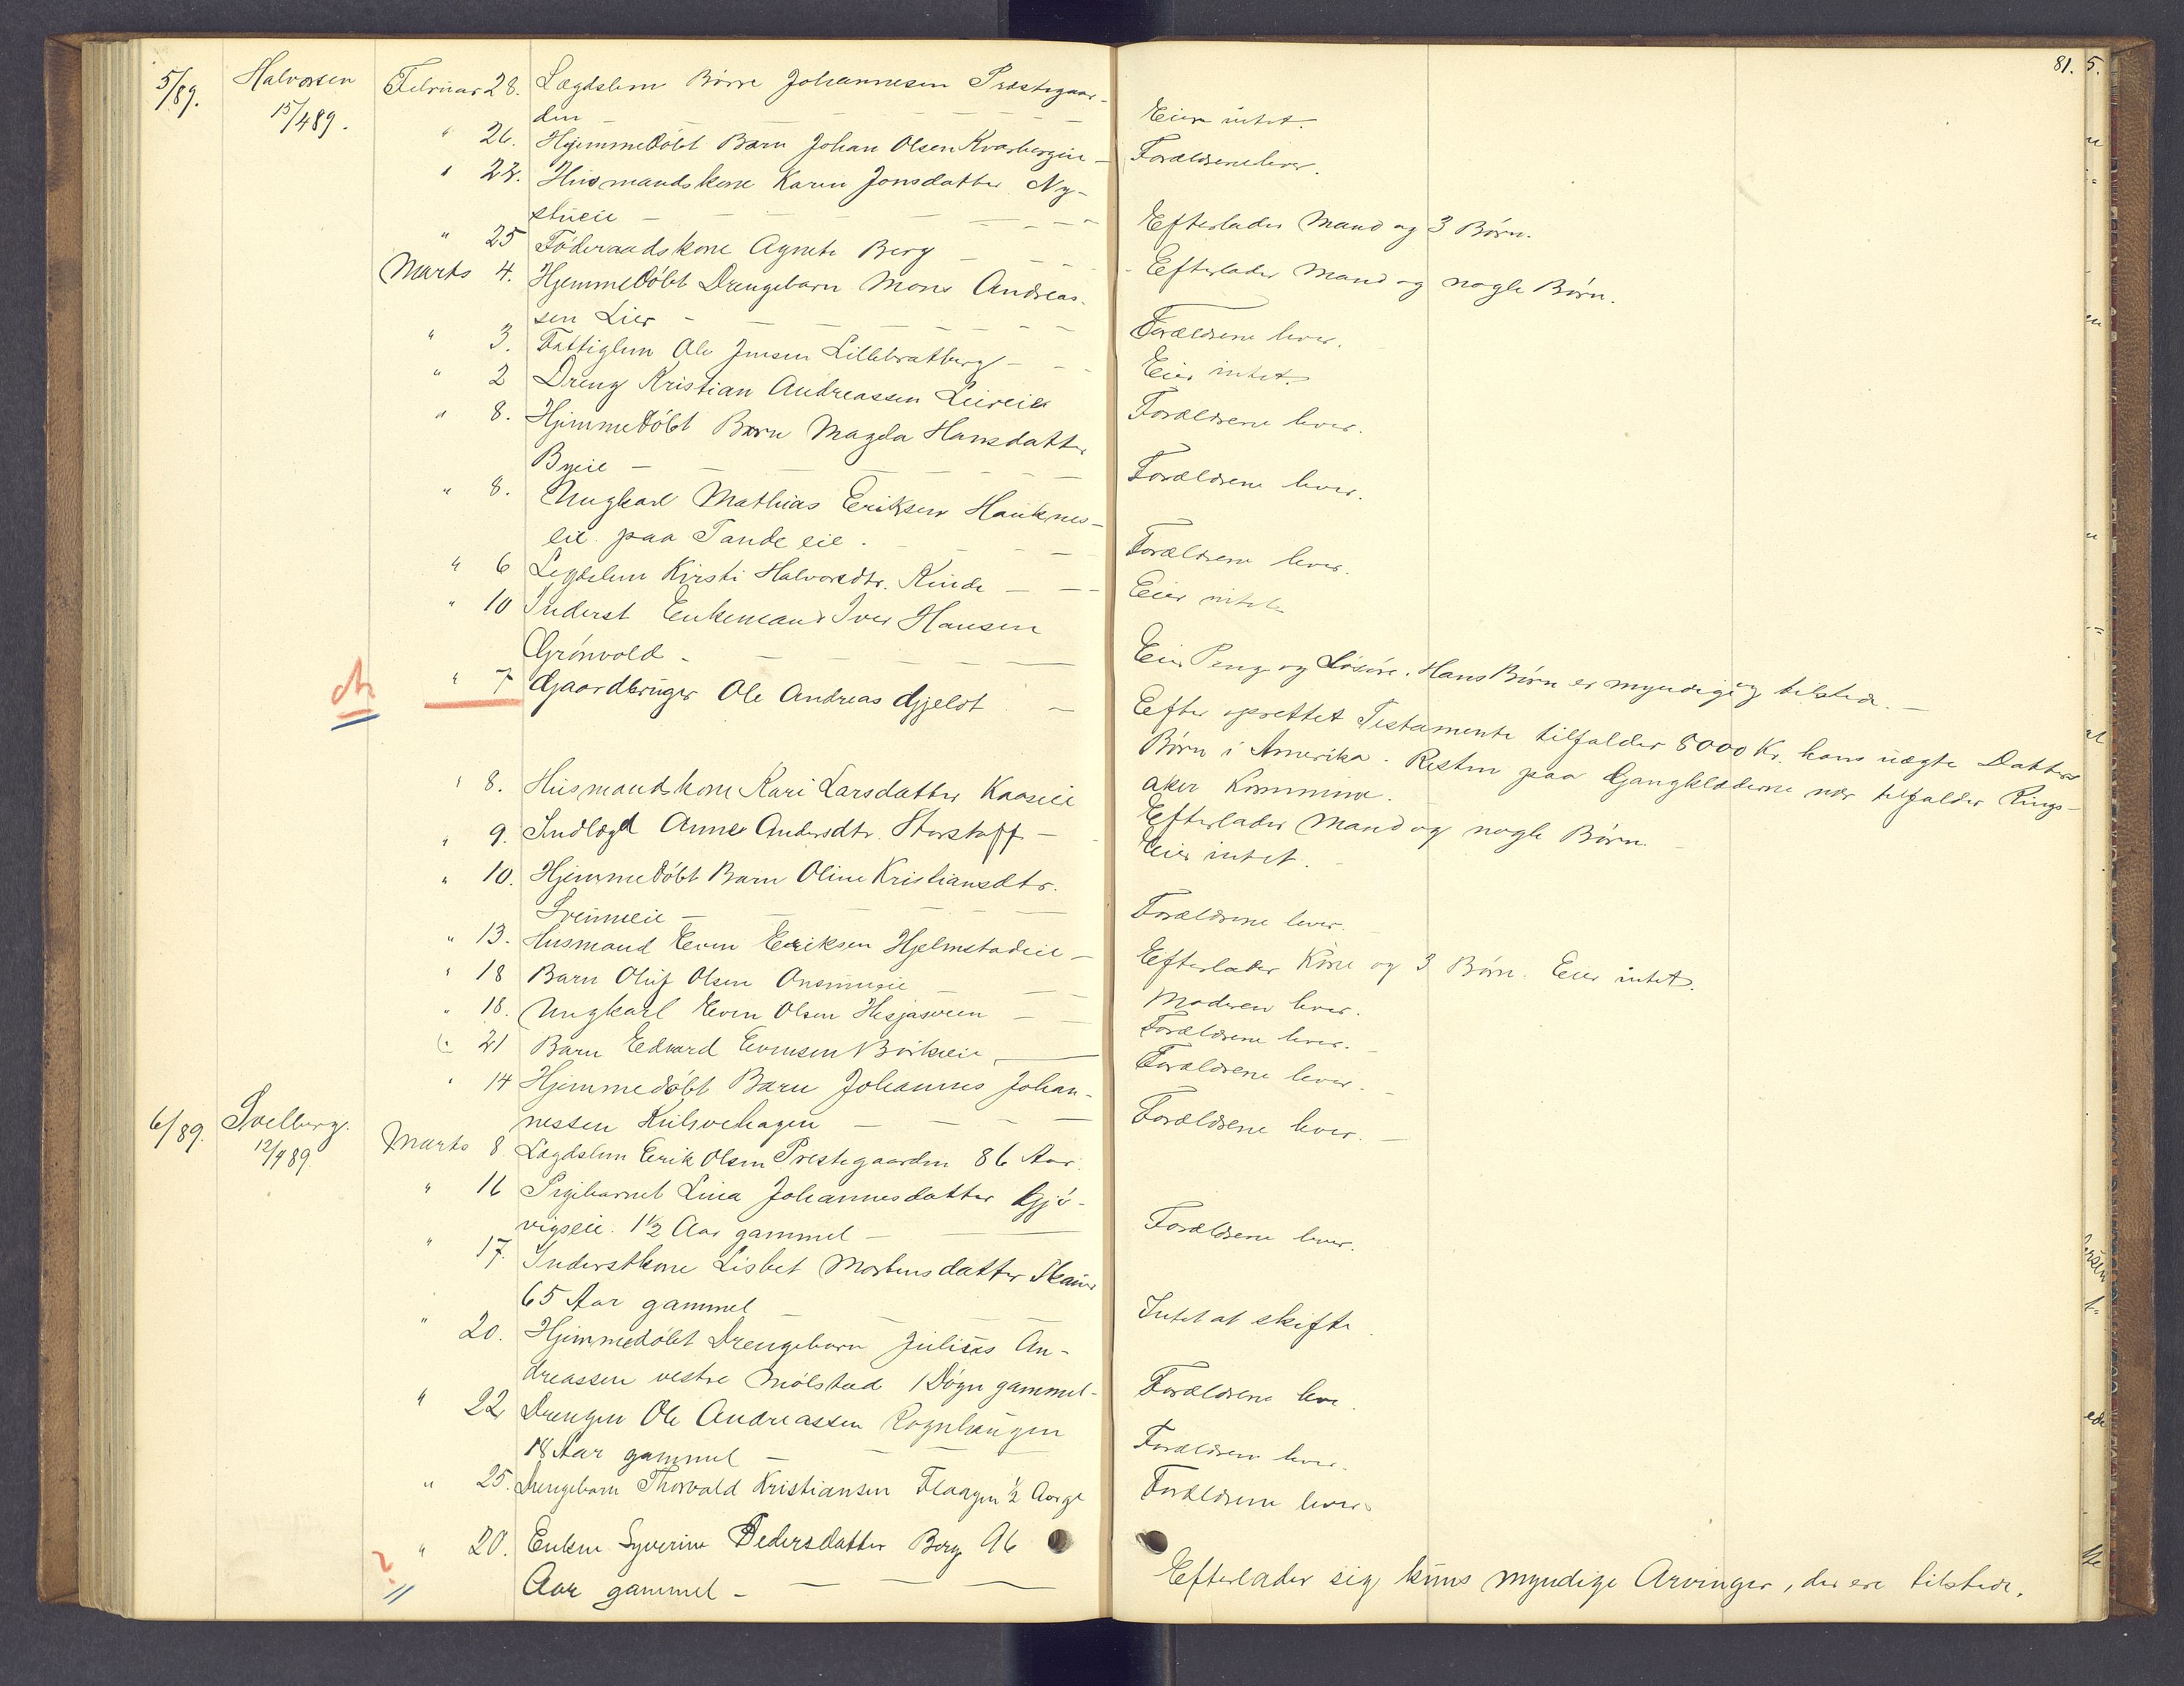 81. 5.
5/89. Halvorsen Februar 28. Lægdslem Børre Johannesen Prestegaar-
15/4 89. den — Eier intet.
" 26. Hjemmedøbt Barn Johan Olsen Kvarbergeie — Forældrene lever.
" 22. Husmandskone Karen Jonsdatter Ny-
stueie — Efterlader Mand og 3 Børn.
" 25 Føderaadskone Agnete Berg — Efterlader Mand og nogle Børn.
Marts 4. Hjemmedøbt Drengebarn Mons Andreas-
sen Lier — Forældrene lever.
" 3. Fattiglem Ole Jensen Lillebratberg — Eier intet.
" 2 Dreng Kristian Andreassen Leireie Forældrene lever.
" 8. Hjemmedøbt Barn Magda Hansdatter
Byeie — Forældrene lever.
" 8. Ungkarl Mathias Eriksen Hauknes-
eie paa Tande eie. Forældrene lever.
" 6 Legdslem Kirsti Halvorsdtr. Rinde — Eier intet
" 10 Inderst Enkemand Iver Hansen
Grønvold — Eier Penge og Løsøre. Hans Børn er myndige og tilstede. —
" 7 Gaardbruger Ole Andreas Gjeldt — Efter oprettet Testamente tilfalder 8000 Kr. hans uægte Datters
Børn i Amerika. Resten paa Gangklæderne nær tilfalder Rings-
aker Kommune.
" 8. Husmandskone Kari Larsdatter Kaaseie Efterlader Mand og nogle Børn.
" 9. Indlægd Anne Andersdtr. Storstoff — Eier intet.
" 10. Hjemmedøbt Barn Oline Kristiansdtr.
Sveumeie — Forældrene lever.
" 13. Husmand Even Eriksen Hjelmstadeie — Efterlader Kone og 3 Børn. Eier intet.
" 18 Barn Oluf Olsen — Moderen lever.
" 18. Ungkarl Even Olsen Hesjasveen — Forældrene lever. —
" 21 Barn Edvard Evensen Birkeeie — Forældrene lever.
" 14 Hjemmedøbt Barn Johannes Johan-
nessen — Forældrene lever. —
6/89. Svelberg. Marts 8 Lægdslem Erik Olsen Prestegaarden 86 Aar.
12/4 89. " 16 Pigebarnet Lina Johannesdatter Gjø-
vigseie. 1½ Aar gammel — Forældrene lever.
" 17. Inderstkone Lisbet Mortensdatter
65 Aar gammel — Intet at skifte
" 20. Hjemmedøbt Drengebarn Julius An-
dreassen vestre Mølstad 1 Døgn gammel — Forældrene leve.
" 22 Drengen Ole Andreassen Rognhaugen
18 Aar gammel — Forældrene lever.
" 25. Drengebarn Thorvald Kristiansen Flaagen ½ Aar gl Forældrene lever
" 20. Enken Syverine Pedersdatter Berg 96
Aar gammel — Efterlader sig kuns myndige Arvinger, der ere tilstede.